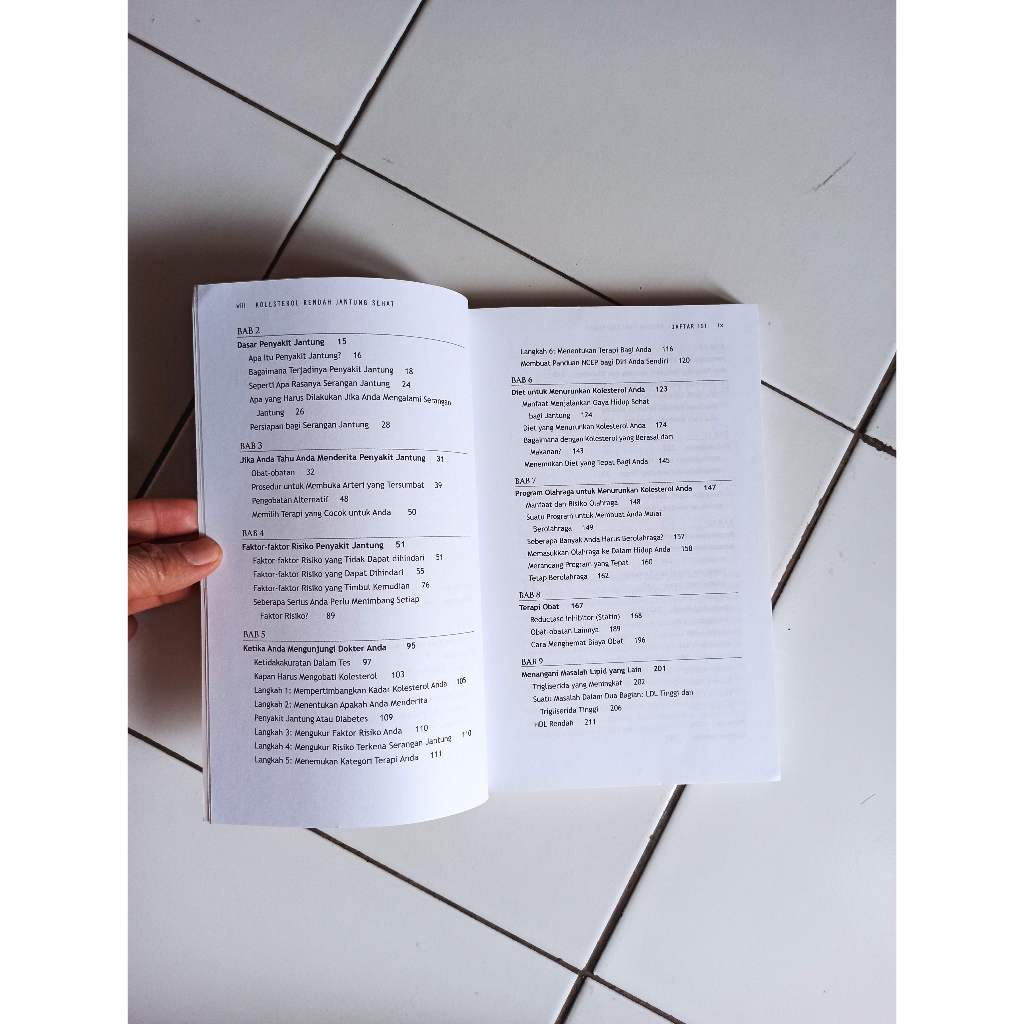 viii KOLESTEROL RENDAH JANTUNG SEHAT
BAB 2
Dasar Penyakit Jantung 15
Apa Itu Penyakit Jantung? 16
Bagaimana Terjadinya Penyakit Jantung 18
Seperti Apa Rasanya Serangan Jantung 24
Apa yang Harus Dilakukan Jika Anda Mengalami Serangan
Jantung 26
Persiapan bagi Serangan Jantung 28
BAB 3
Jika Anda Tahu Anda Menderita Penyakit Jantung 31
Obat-obatan 32
Prosedur untuk Membuka Arteri yang Tersumbat 39
Pengobatan Alternatif 48
Memilih Terapi yang Cocok untuk Anda 50
BAB 4
Faktor-faktor Risiko Penyakit Jantung 51
Faktor-faktor Risiko yang Tidak Dapat dihindari 51
Faktor-faktor Risiko yang Dapat Dihindari 55
Faktor-faktor Risiko yang Timbul Kemudian 76
Seberapa Serius Anda Perlu Menimbang Setiap
Faktor Risiko? 89
BAB 5
Ketika Anda Mengunjungi Dokter Anda 95
Ketidakakuratan Dalam Tes 97
Kapan Harus Mengobati Kolesterol 103
Langkah 1: Mempertimbangkan Kadar Kolesterol Anda 105
Langkah 2: Menentukan Apakah Anda Menderita
Penyakit Jantung Atau Diabetes 109
Langkah 3: Mengukur Faktor Risiko Anda 110
Langkah 4: Mengukur Risiko Terkena Serangan Jantung 110
Langkah 5: Menemukan Kategori Terapi Anda 111
DAFTAR ISI ix
Langkah 6: Menentukan Terapi Bagi Anda 116
Membuat Panduan NCEP bagi Diri Anda Sendiri 120
BAB 6
Diet untuk Menurunkan Kolesterol Anda 123
Manfaat Menjalankan Gaya Hidup Sehat
bagi Jantung 124
Diet yang Menurunkan Kolesterol Anda 124
Bagaimana dengan Kolesterol yang Berasal dari
Makanan? 143
Menemukan Diet yang Tepat Bagi Anda 145
BAB 7
Program Olahraga untuk Menurunkan Kolesterol Anda 147
Manfaat dan Risiko Olahraga 148
Suatu Program untuk Membuat Anda Mulai
Berolahraga 149
Seberapa Banyak Anda Harus Berolahraga? 157
Memasukkan Olahraga ke Dalam Hidup Anda 158
Merancang Program yang Tepat 160
Tetap Berolahraga 162
BAB 8
Terapi Obat 167
Reductase Inhibitor (Statin) 168
Obat-obatan Lainnya 189
Cara Menghemat Biaya Obat 196
BAB 9
Menangani Masalah Lipid yang Lain 201
Trigliserida yang Meningkat 202
Suatu Masalah Dalam Dua Bagian: LDL Tinggi dan
Trigliserida Tinggi 206
HDL Rendah 211